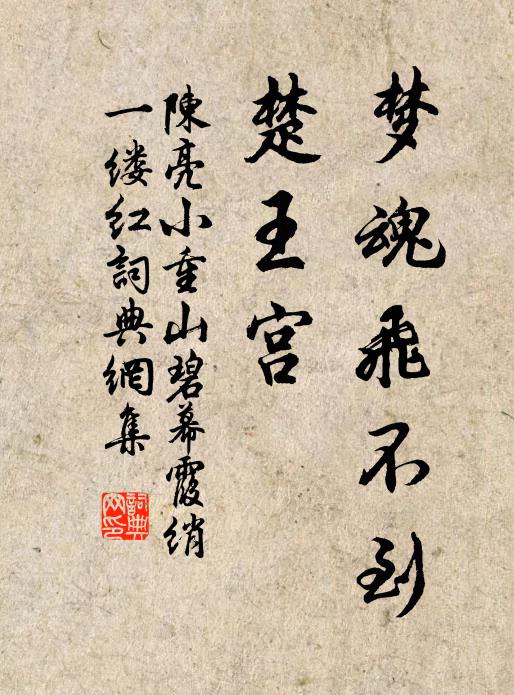 梦魂飛不到
楚王宫
陳亮小重山碧幕霞綃
一缕红詞典網集
詞典
网印